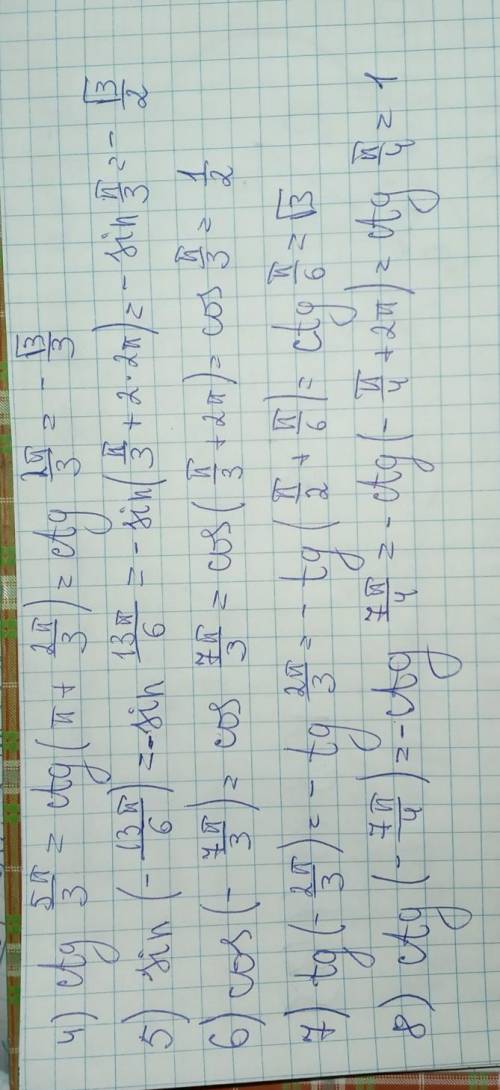 4) ctg 5π/3 = ctg(π + 2π/3) = ctg 2π/3 = - √3/3
5) sin(- 13π/6) = -sin 13π/6 = -sin(π/3 + 2·2π) = - sin π/3 = - √3/2
6) cos(- 7π/3) = cos 7π/3 = cos(π/3 + 2π) = cos π/3 = 1/2
7) tg(- 2π/3) = - tg 2π/3 = - tg(π/2 + π/6) = ctg π/6 = √3
8) ctg(- 7π/4) = -ctg 7π/4 = - ctg(- π/4 + 2π) = ctg π/4 = 1